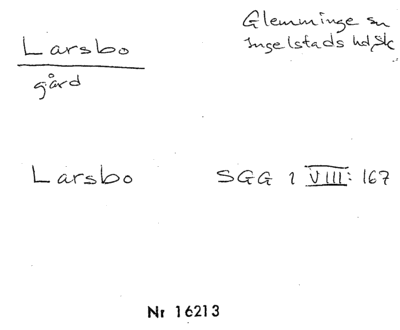 Larsbo
gård
Glemminge sn
Ingelstads hd, Sk
Larsbo
SGG 1 VIII: 167
Nr 16213